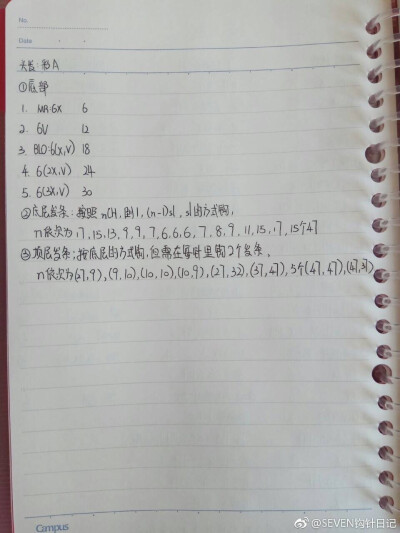 No.
Date
头盖:形A
①底部
1. MR:6X 6
2. 6V 12
3. BLO:6(X,V) 18
4. 6(2X,V) 24
5. 6(3X,V) 30
②底层发条:按照 nCH, 1, (n-1)sl, sl的方式钩,
n依次为17,15,13,9,9,7,6,6,6,7,8,9,11,15,17,15个47
③顶层发条:按底层的方式钩,但需在每针里钩2个发条,
n依次为(47,9),(9,10),(10,10),(10,9),(27,32),(37,47),5个(47,47),(47,37)
Campus
@SEVEN钩针日记